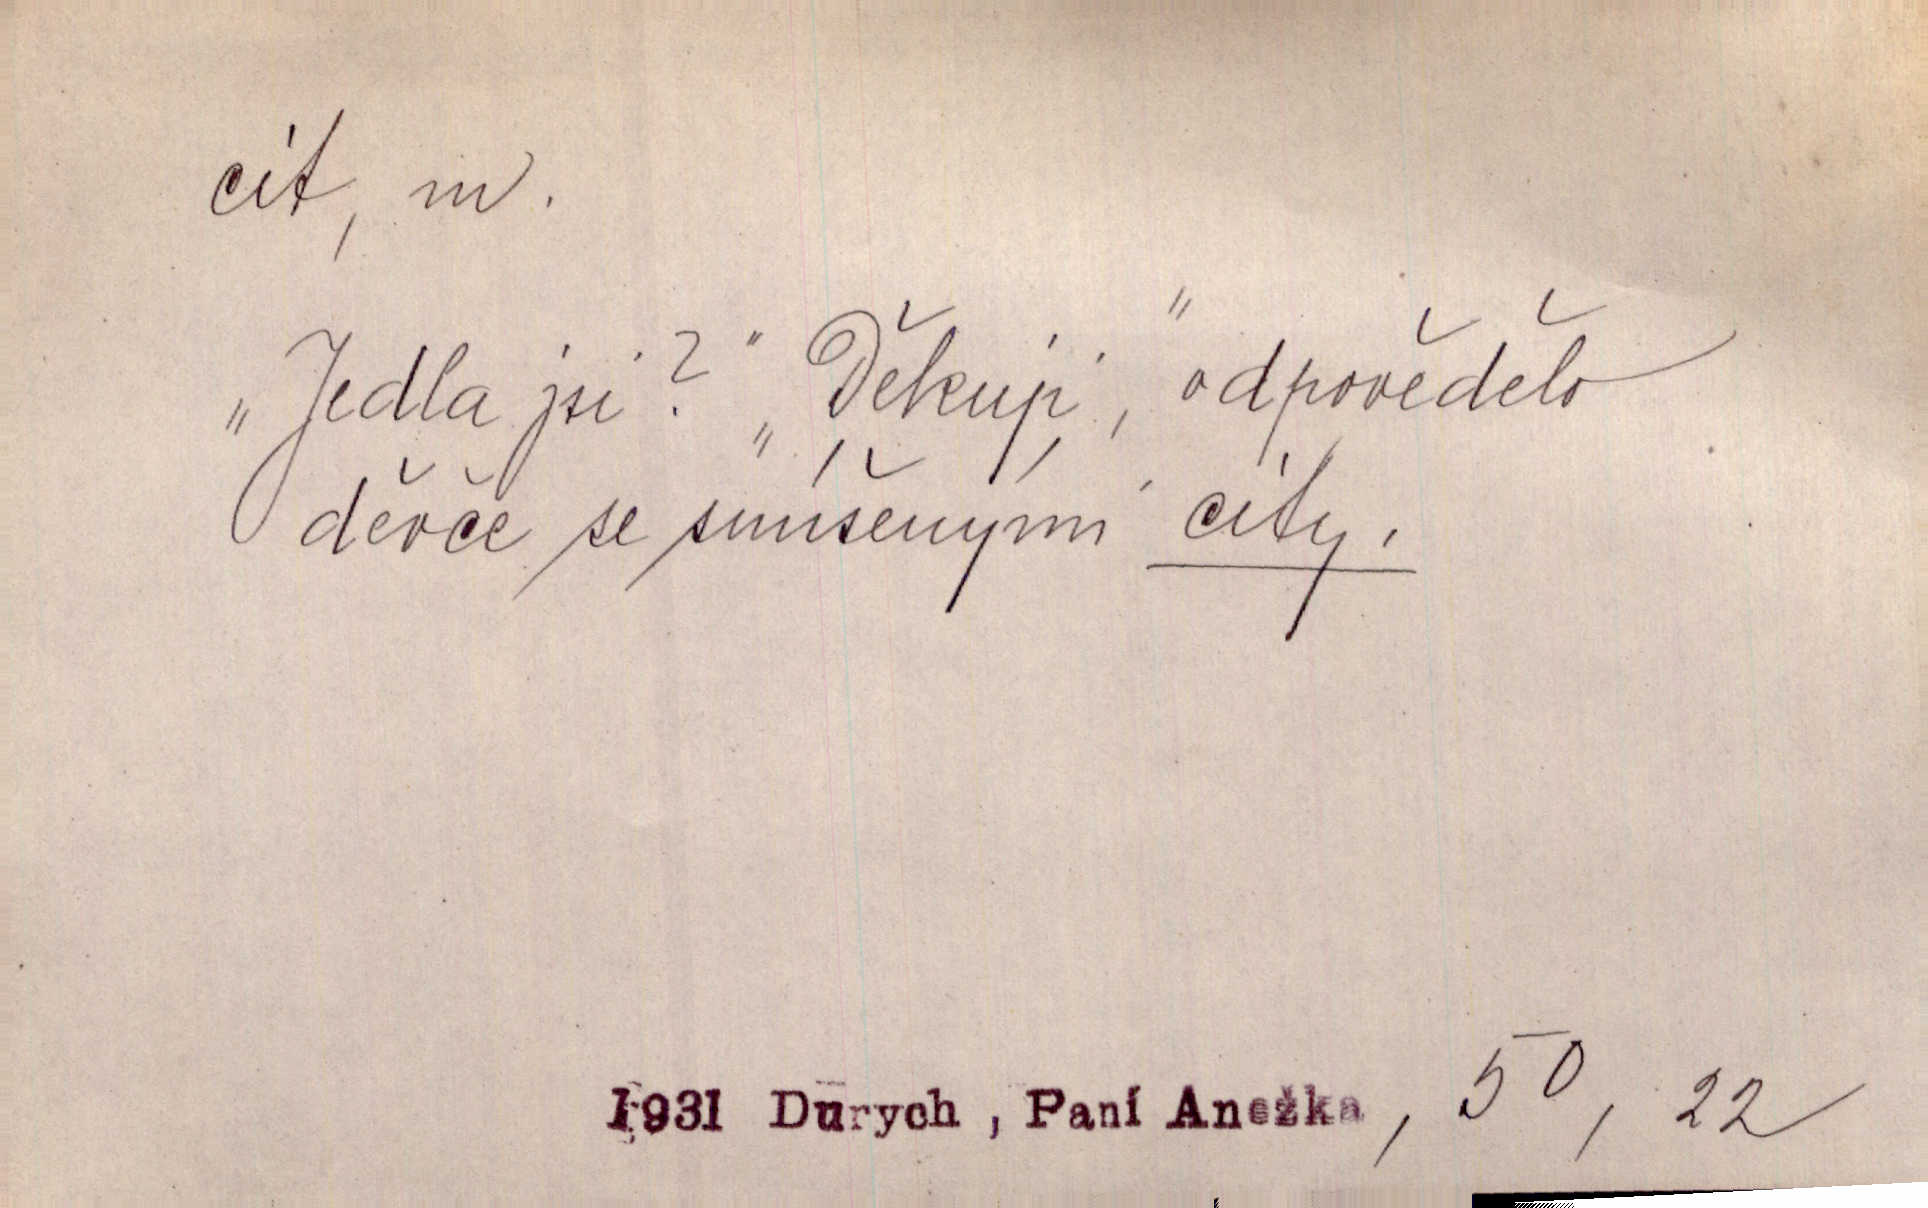 cit, m.
„Jedla jsi?" „Děkuji," odpovědělo
děvče se smíšenými city.
1931 Durych, Paní Anežka, 50, 22